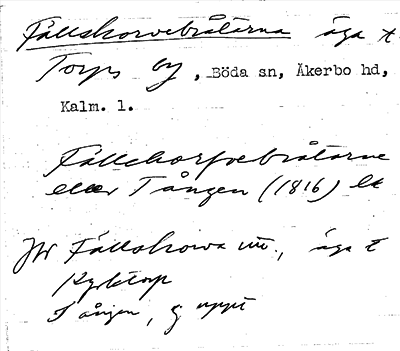 Fällskorvebråtarna äga t.
Torps by, Böda sn, Åkerbo hd,
Kalm. l.
Fällekorfvebråtarne
eller Tången (1816) le
Jfr Fällskorva m., äga t
Kyrketorp
Tången, ej uppt